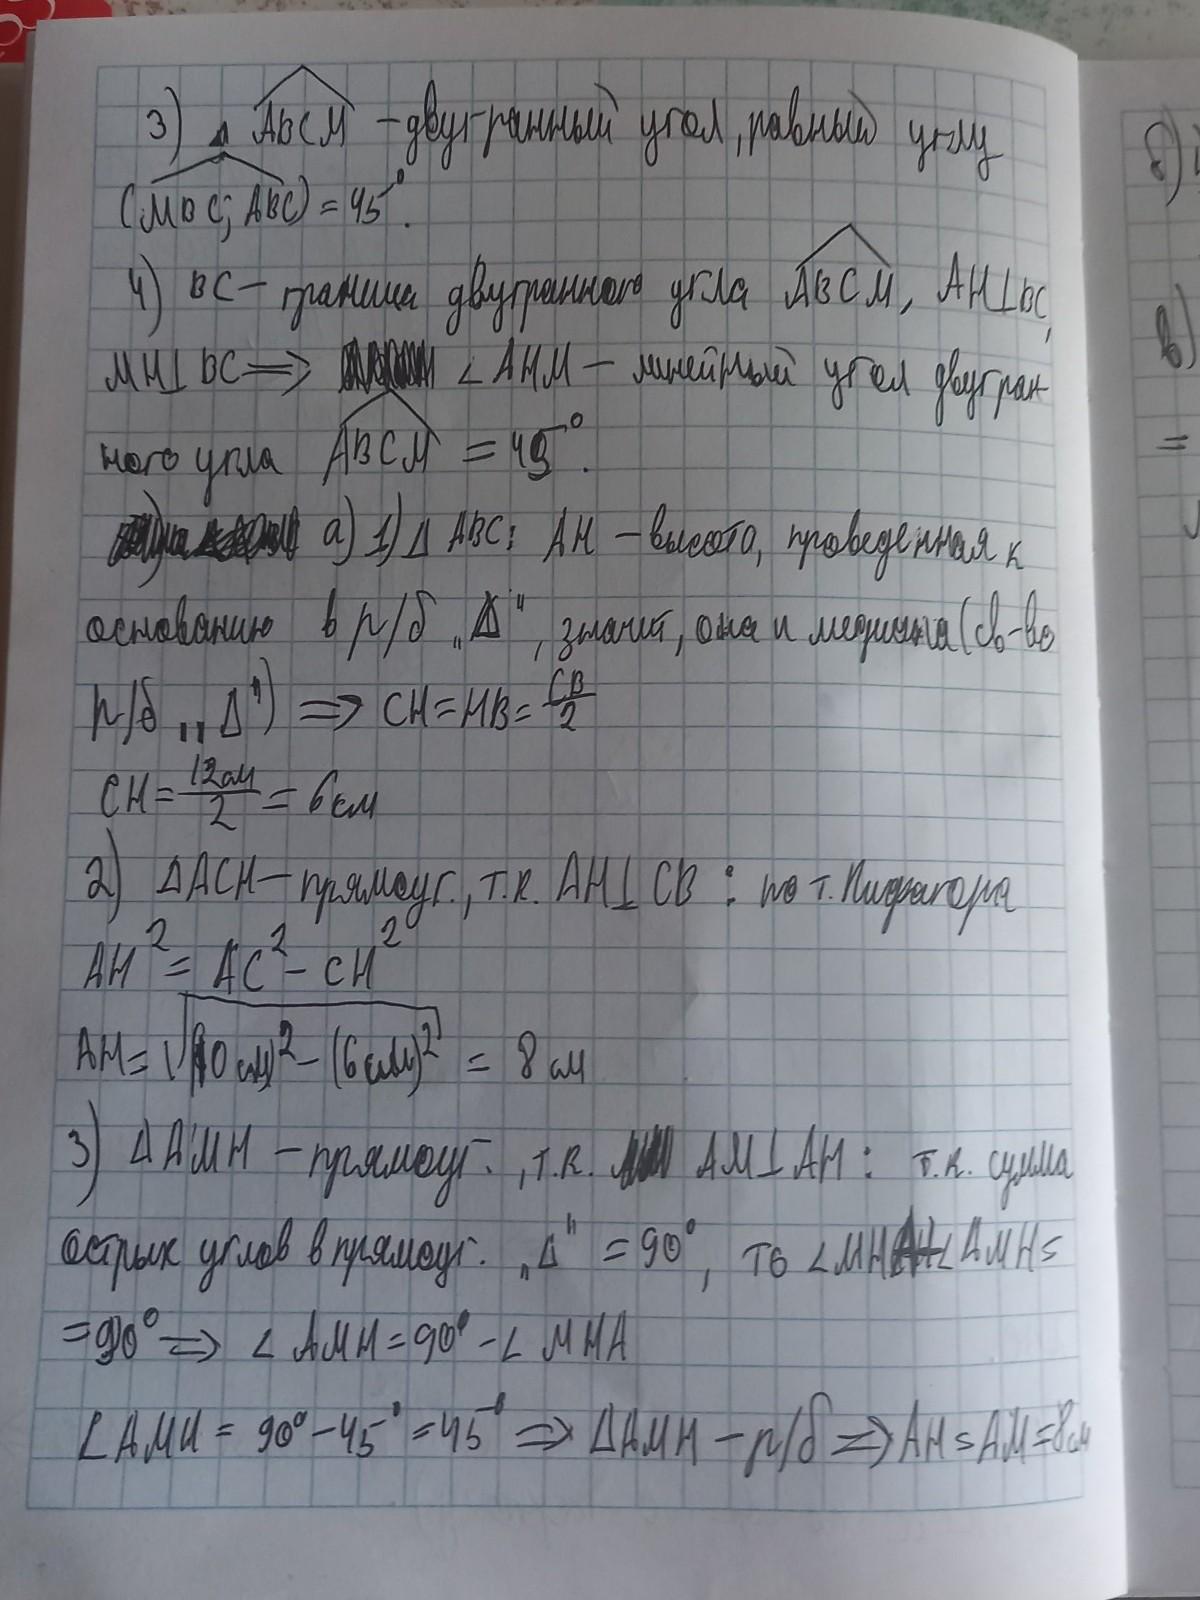 3) ABCM – двугранный угол, равный углу
(MBC; ABC) = 45°.
4) BC – граница двугранного угла ABCM, AH⊥BC,
MH⊥BC ⟹ ∠AHM – линейный угол двугран-
ного угла ABCM = 45°.
а) 1) Δ ABC: AH – высота, проведенная к
основанию в р/б „Δ“, значит, она и медиана (св-во
р/б „Δ“) ⟹ CH = HB = CB/2
CH = 12см/2 = 6 см
2) ΔACH – прямоуг., т.к. AH⊥CB : по т. Пифагора
AH² = AC² – CH²
AH = √(10 см)² – (6 см)² = 8 см
3) ΔAMH – прямоуг., т.к. AM⊥AH : т.к. сумма
острых углов в прямоуг. „Δ“ = 90°, то ∠MHA+∠AMH=
= 90° ⟹ ∠ AMH = 90° – ∠ MHA
∠AMH = 90° – 45° = 45° ⟹ ΔAMH – р/б ⟹ AH = AM = 8см